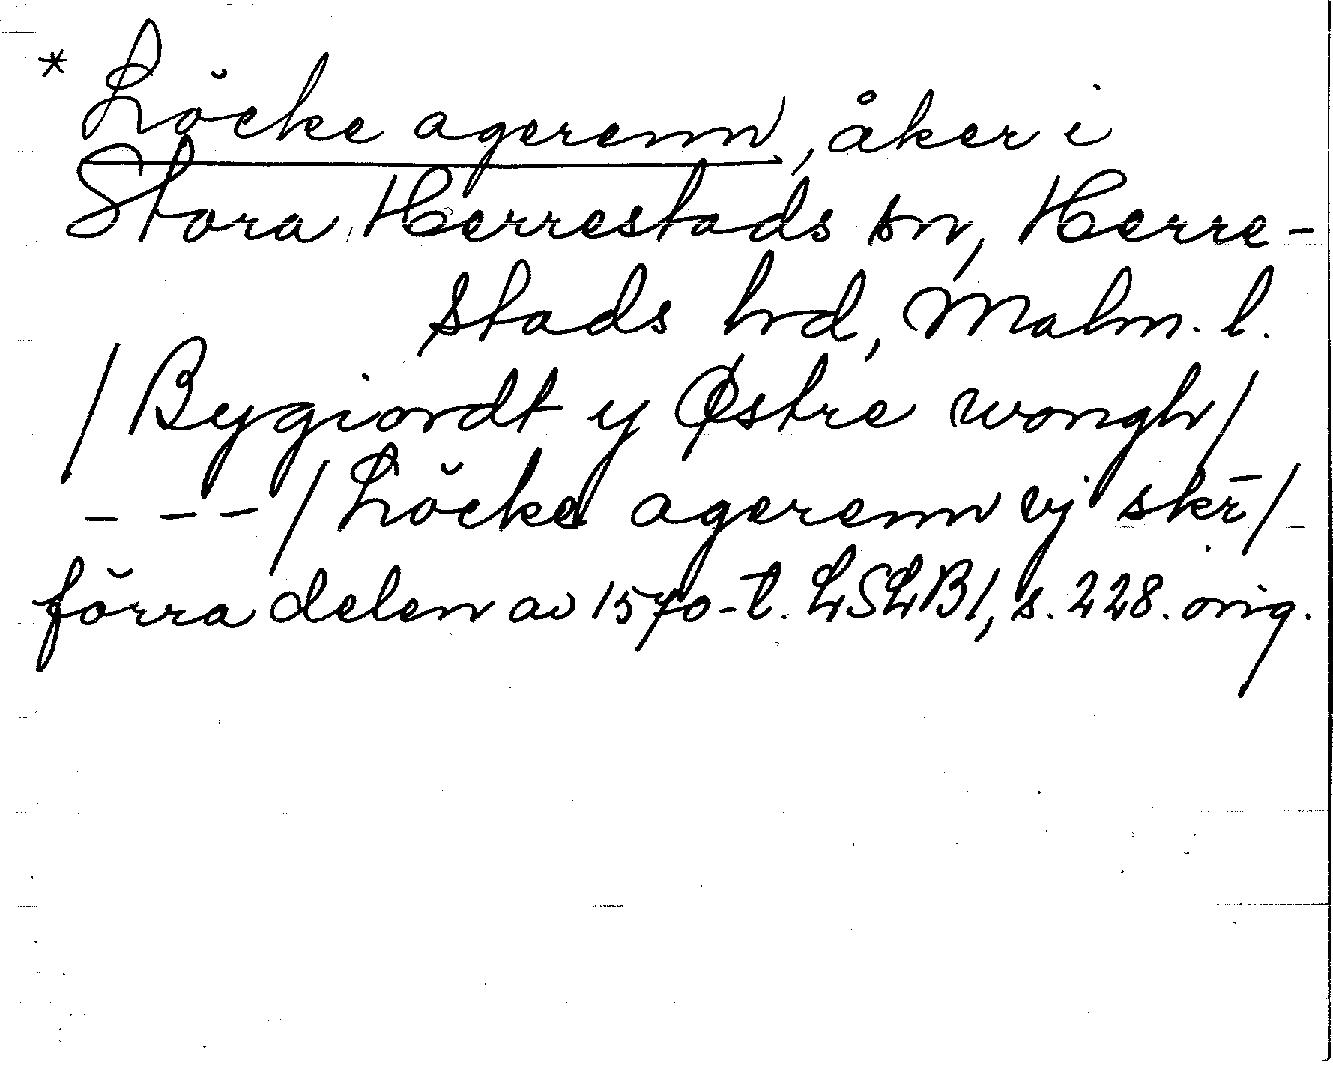 * Löcke agerenn, åker i
Stora Herrestads sn, Herre-
stads hd, Malm. l.
/ Bygiordt y Østre wongh /
- - - / Löcke agerenn vj skr̄ /
förra delen av 1570-t. LSLB1, s. 228. orig.